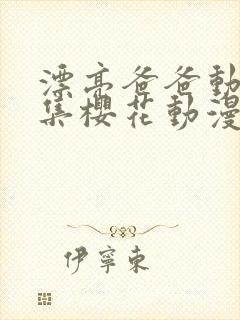 漂亮爸爸動
集櫻花動漫
伊寧東